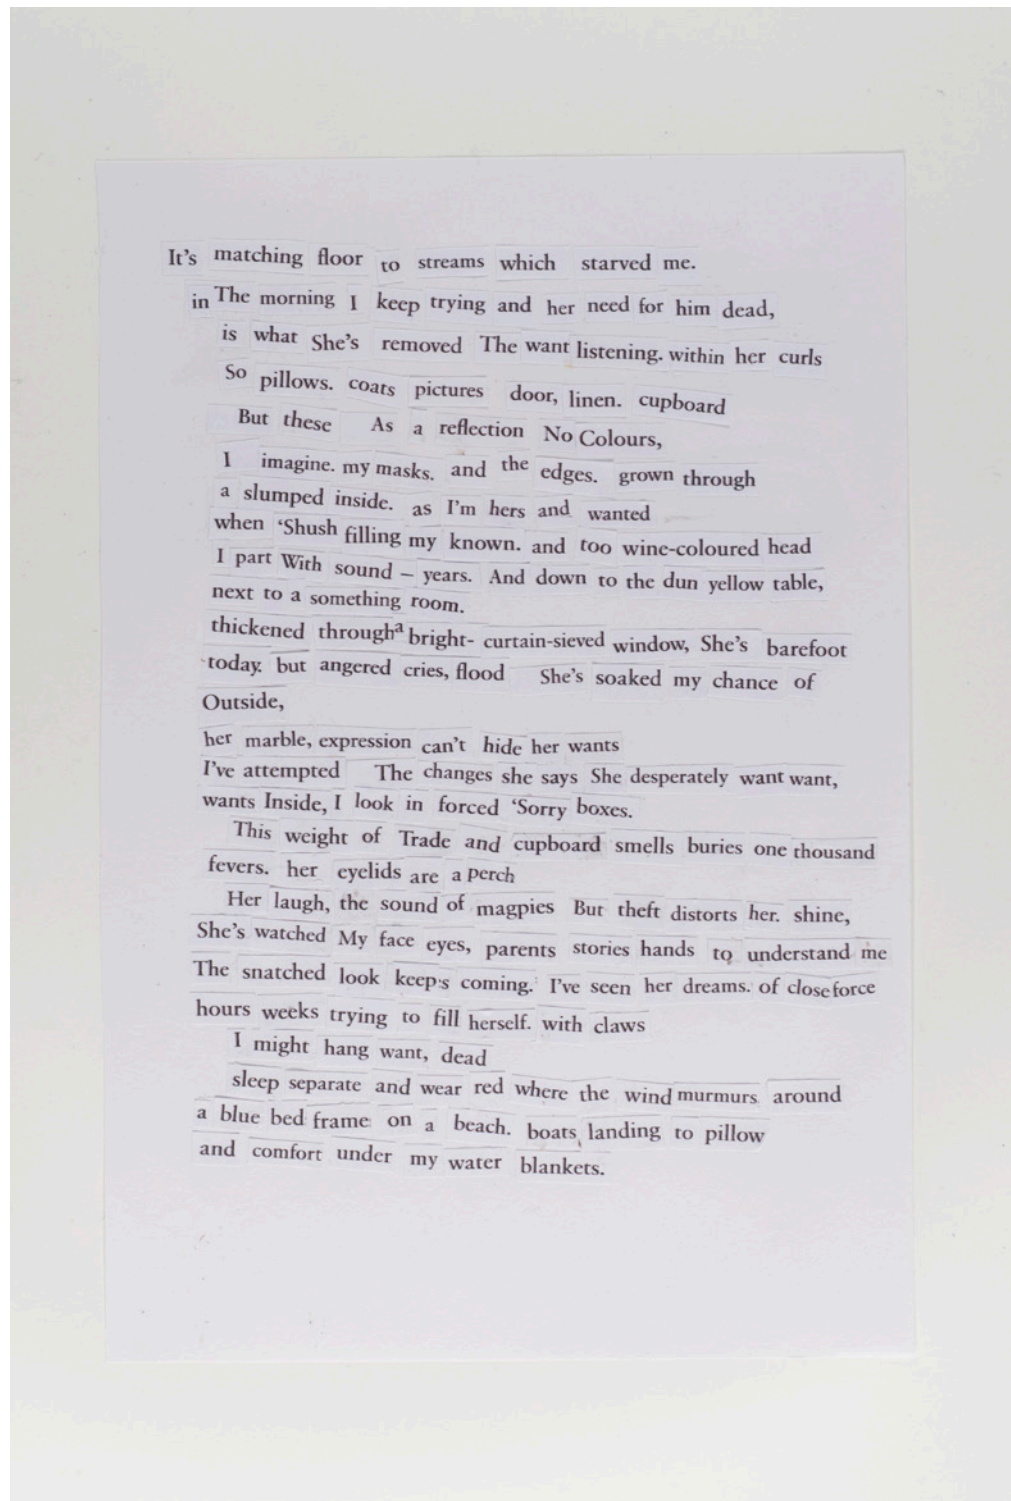 It's matching floor to streams which starved me.
in The morning I keep trying and her need for him dead,
is what She's removed The want listening. within her curls
So pillows. coats pictures door, linen. cupboard
But these As a reflection No Colours,
I imagine. my masks. and the edges. grown through
a slumped inside. as I'm hers and wanted
when ‘Shush filling my known. and too wine-coloured head
I part With sound – years. And down to the dun yellow table,
next to a something room.
thickened through a bright- curtain-sieved window, She's barefoot
today. but angered cries, flood She's soaked my chance of
Outside,
her marble, expression can't hide her wants
I've attempted The changes she says She desperately want want,
wants Inside, I look in forced ‘Sorry boxes.
This weight of Trade and cupboard smells buries one thousand
fevers. her eyelids are a perch
Her laugh, the sound of magpies But theft distorts her. shine,
She's watched My face eyes, parents stories hands to understand me
The snatched look keeps coming. I've seen her dreams. of close force
hours weeks trying to fill herself. with claws
I might hang want, dead
sleep separate and wear red where the wind murmurs around
a blue bed frame on a beach. boats landing to pillow
and comfort under my water blankets.